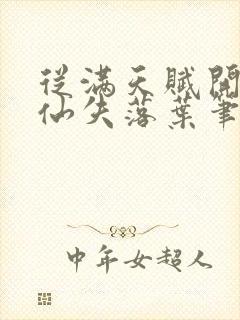 從滿天賦開
仙失落葉筆
中年女超人